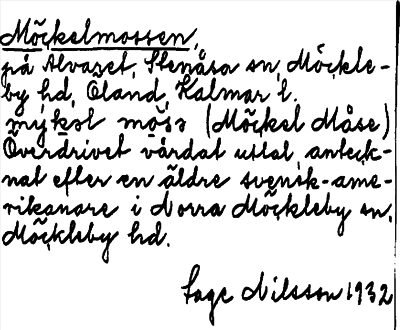 Möckelmossen,
på Alvaret, Stenåsa sn, Möckle-
by hd, Öland, Kalmar l.
mykəl mosə (Möckel Måse)
Överdrivet vårdat uttal, anteck-
nat efter en äldre svensk-ame-
rikanare i Norra Möckleby sn,
Möckleby hd.
Sage Nilsson 1932